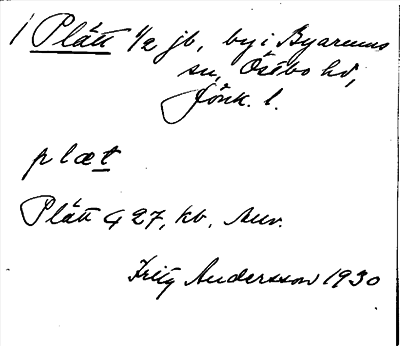 1 Plätt 1/2 jb, by i Byarums
sn, Östbo hd,
Jönk. l.
plæt
Plätt G 27, kb,
Fritz Andersson 1930